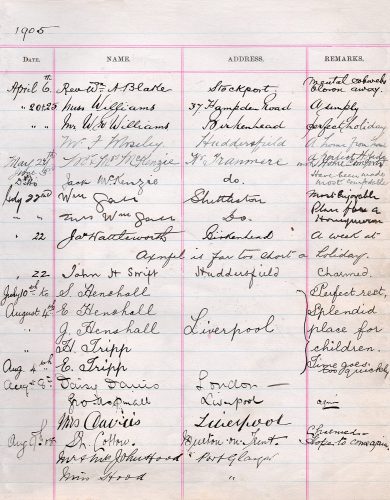 1905
DATE. NAME. ADDRESS. REMARKS.
April 6th Rev Wm A Blake Stockport Mental cobwebs blown away.
" 20 to 25 Miss Williams 37 Hampden Road A simply
" " Mr W H Williams Birkenhead perfect holiday
W. J Mosley Huddersfield A home from home
May 29th McKenzie Tranmere A perfect
do Jack McKenzie do. Have been made most comfortable
July 22nd Wm Gass Shuttleton Most Enjoyable
" Mrs Wm Gass Do. Place for a Honeymoon
" 22 Jas Hattleworth Birkenhead A week at
is far too short a holiday.
" 22 John H Swift Huddersfield Charmed.
July 10th to S. Henshall Perfect rest,
August 4th E Henshall Splendid
" J. Henshall Liverpool place for
" H. Tripp children.
Aug. 4th E. Tripp Time goes too quickly
Aug 8th Daisy Davies London
Geo Liverpool
" Mrs Davies Liverpool
Dr. Collow. Burton on Trent Charmed. Hope to come again.
Mr & Mrs John Hood Port Glasgow
Miss Hood " "